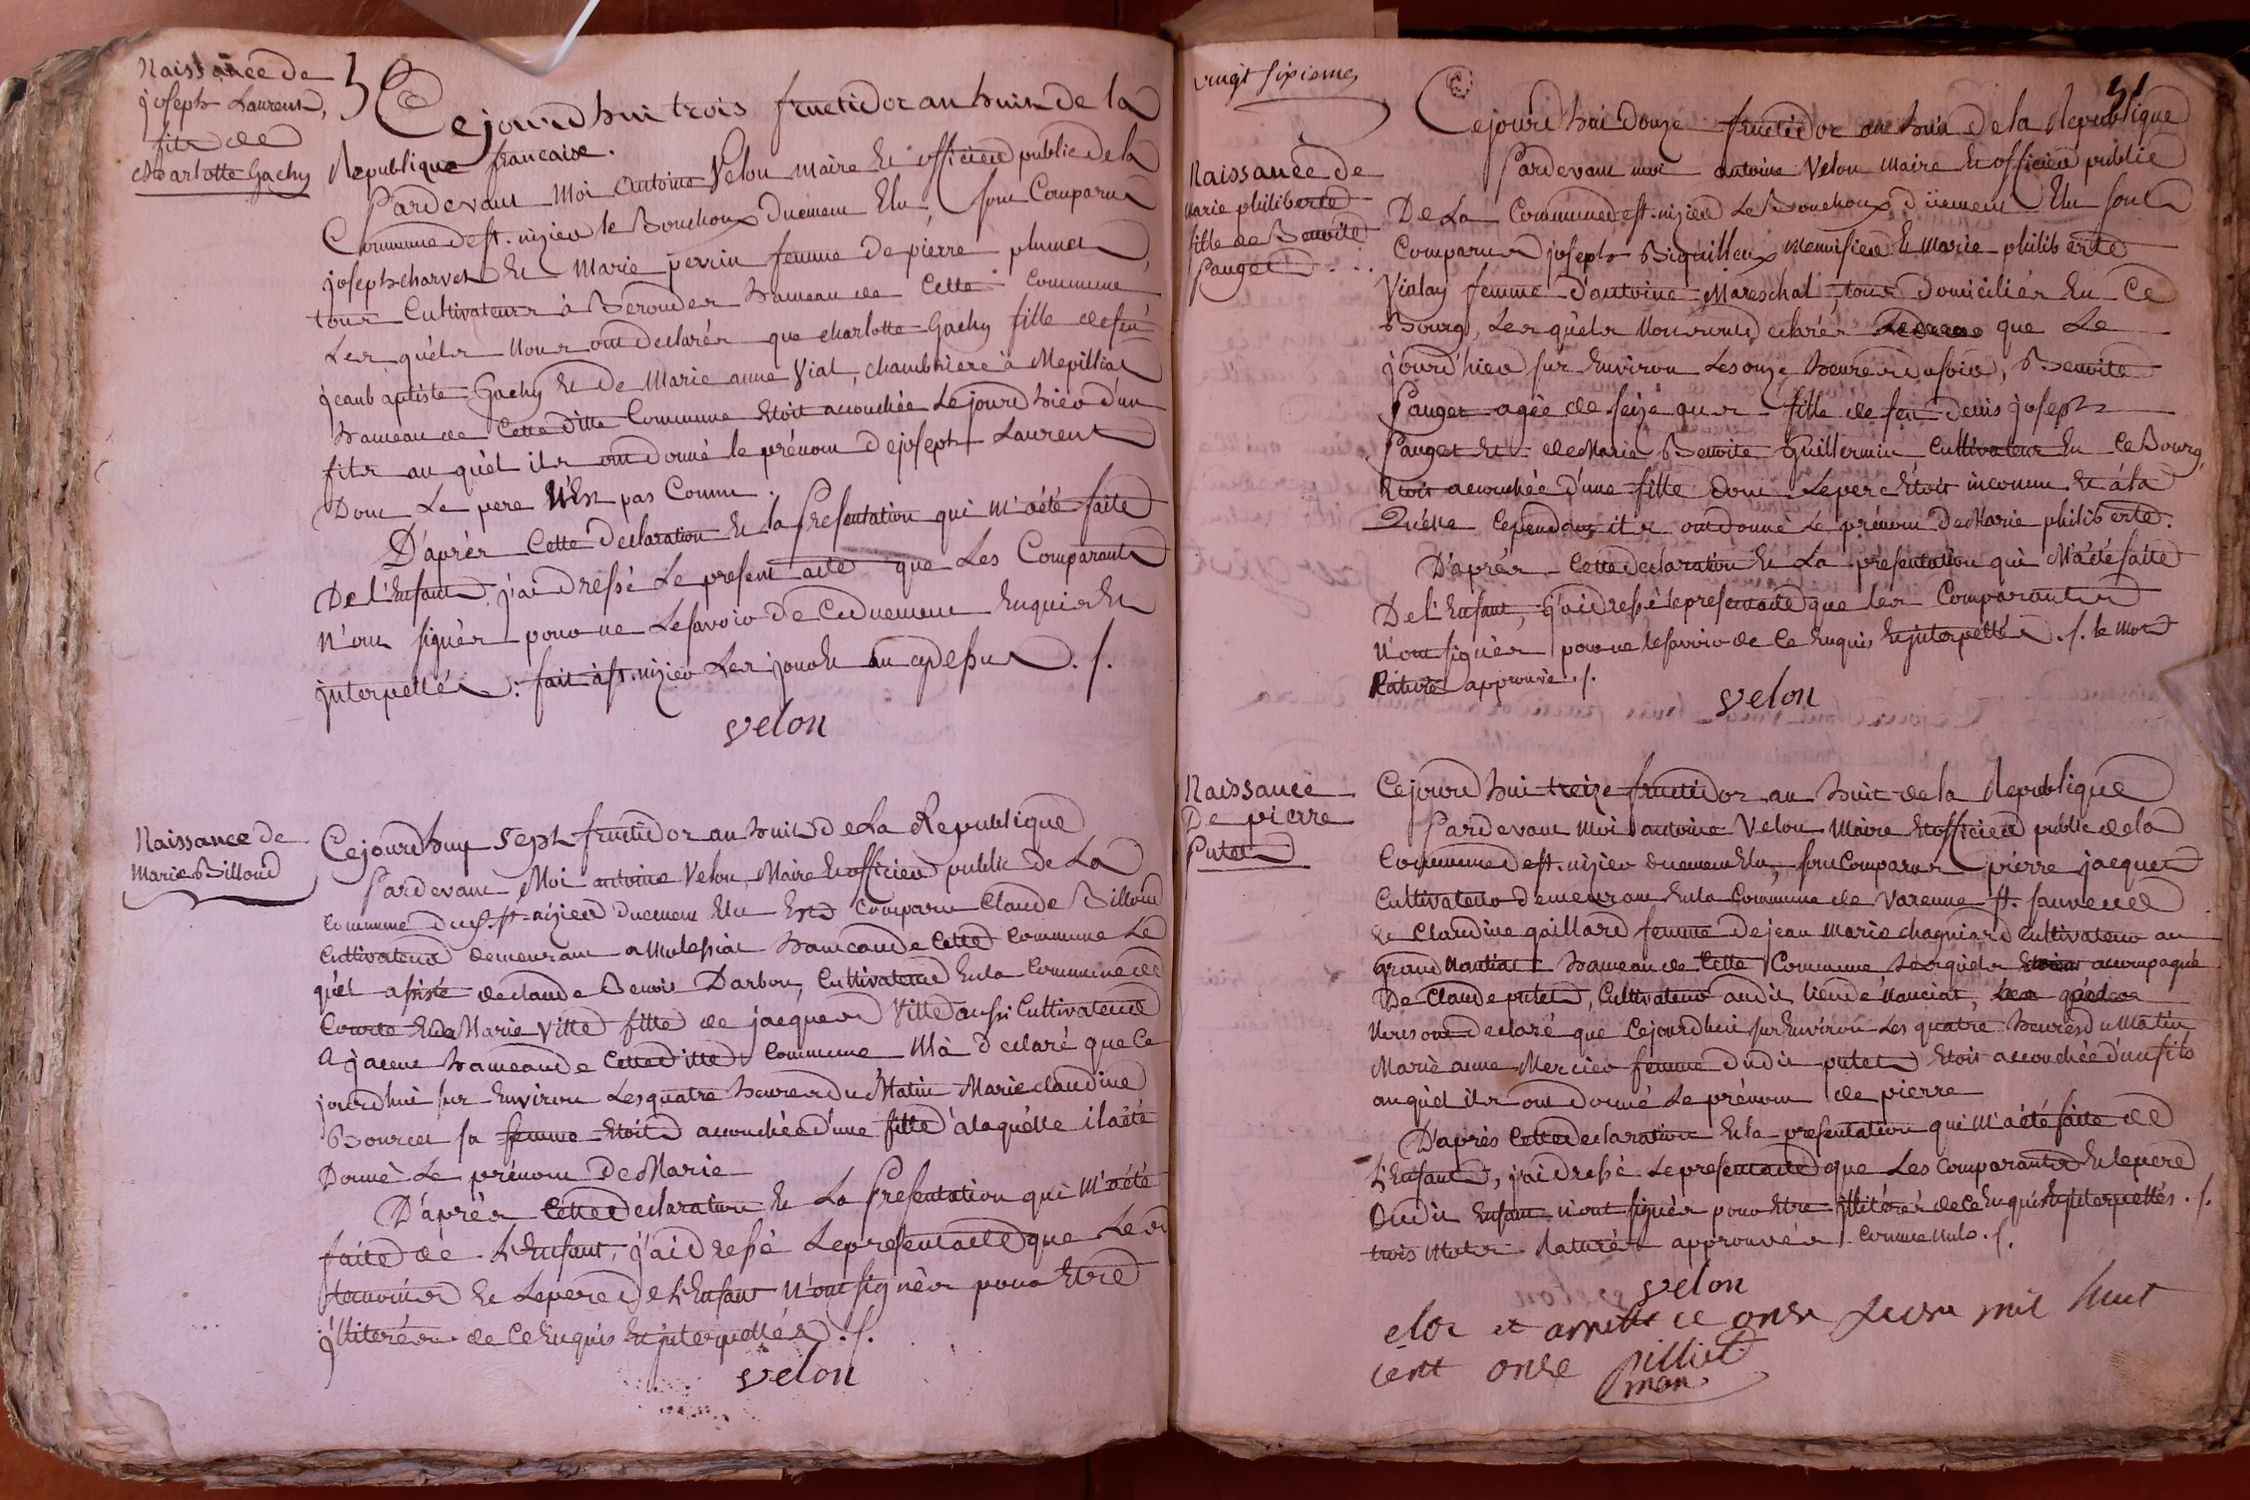 Naissance de
joseph Laurent,
fils de
Charlotte Gachy
Cejourd'hui trois fructidor an huit de la
Republique francaise.
Pardevant Moi antoine Velon maire et officier public de la
Commune de st. nizier le Bouchoux duement Elu, sont Comparus
joseph charvet et Marie perrin femme de pierre plumet,
tous Cultivateurs à Beroudes hameau de Cette Commune
Les quéls nous ont declarés que charlotte Gachy fille de feu
jeanbaptiste Gachy et de Marie anne Vial, chambriere à Mepilliat
hameau de Cette ditte Commune Etoit accouchée Lejourd'hier d'un
fils au quél ils ont donné le prénom de joseph Laurent
Dont Le pere N'Est pas Connu.
D'aprés Cette declaration et la Presentation qui m'a été faite
De l'Enfant, j'ai dressé Le present acte que Les Comparants
N'ont signés pour ne Le savoir de Ce duement Enquis et
jnterpellés: fait à st. nizier Les jour et an cy dessus ./.
velon
Naissance de
Marie Billoud
Cejourd'huy sept fructidor an huit de La Republique
Pardevant Moi antoine Velon, Maire et officier public de La
Commune dud. st-nizier duement Elu Est Comparu Claude Billoud
Cultivateur demeurant a Molessiat hameau de Cette Commune Le
quél assisté de claude Benoit Darbon, Cultivateur En la Commune de
Courte et de Marie Ville fille de jacques Ville aussi Cultivateur
A jacene hameau de Cette ditte Commune M'à declaré que Ce
jourd'hui sur Environ Les quatre heures du Matin Marie claudine
Bourcet sa femme Etoit accouchée d'une fille à laquélle il a été
Donné Le prénom De Marie
D'aprés Cette declaration et La Presentation qui M'a été
faite de L'Enfant, j'ai dressé Le present acte que Les
temoins et Le pere de L'Enfant N'ont signés pour Etre
jlliterés de Ce Enquis et jnterpellés ./.
velon
vingt sixieme
Naissance de
Marie philiberte
fille de Benoite
Pauget
21
Cejourd'hui douze fructidor an huit de la Republique
Pardevant moi antoine Velon Maire et officier public
De La Commune de st. nizier Le Bouchoux duement Elu sont
Comparus joseph Biguilleux Menuisier et Marie philiberte
Vialay femme d'antoine Mareschal tous domiciliés En Ce
Bourg, Les quéls Nous ont declarés que Le
jourd'hier sur Environ Les onze heures du soir, Benoite
Pauget agée de seize ans fille de feu Denis joseph
Pauget et de Marie Benoite Guillermin Cultivateur En Ce Bourg,
Etoit accouchée d'une fille dont Le pere Etoit inconnu et à la
Quélle Cependant ils ont donné Le prénom De Marie philiberte.
D'aprés Cette declaration et La présentation qui M'a été faite
De l'Enfant, j'ai dressé le present acte que les Comparants
N'ont signés pour ne le savoir de Ce Enquis et jnterpellés ./. le Mot
Raturé approuvé ./.
velon
Naissance
De pierre
Putet
Cejourd'hui treize fructidor an huit de la Republique
Pardevant Moi antoine Velon Maire et officier public de la
Commune de st. nizier duement Elu, sont Comparus pierre jacquet
Cultivateur demeurant En la Commune de Varenne st. sauveur
et Claudine gaillard femme de jean Marie chagniard Cultivateur au
grand Nantiat hameau de Cette Commune Lesquéls accompagné
De Claude putet, Cultivateur audit lieu de Nanciat,
Nous ont declaré que Cejourd'hui sur Environ Les quatre heures du Matin
Marie anne Mercier femme dudit putet Etoit accouchée d'un fils
auquél ils ont donné Le prénom de pierre
D'aprés Cette declaration et la presentation qui M'a été faite de
L'Enfant, j'ai dressé Le present acte que Les Comparants et le pere
Dudit Enfant n'ont signés pour Etre jlliterés de Ce Enquis et jnterpellés ./.
trois Mots Raturés approuvés Comme nuls ./.
velon
clos et arrette ce onze mil huit
cent onze pilliet